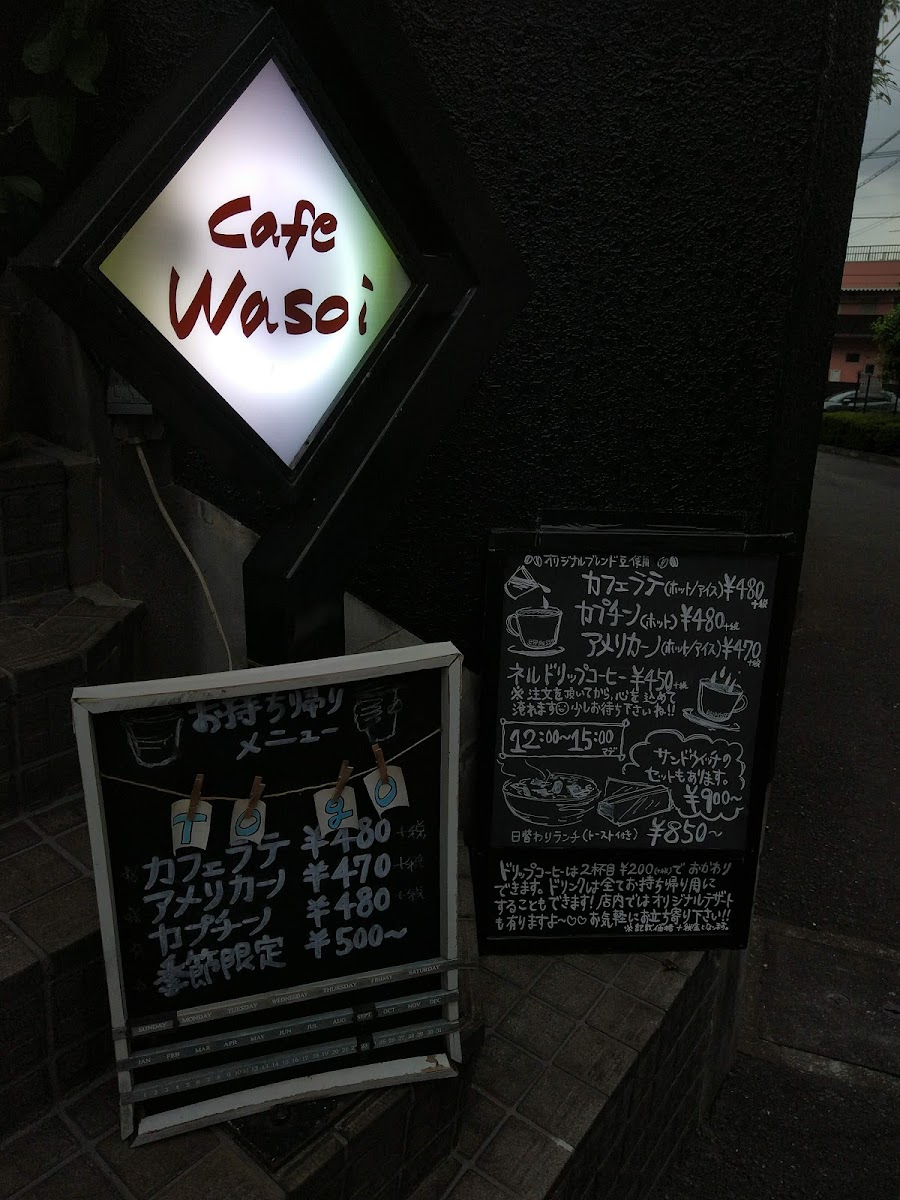 Cafe
Wasoi
お持ち帰り
メニュー
TO GO
カフェラテ ¥480 +税
アメリカーノ ¥470 +税
カプチーノ ¥480 +税
季節限定 ¥500~
SUNDAY MONDAY TUESDAY WEDNESDAY THURSDAY FRIDAY SATURDAY
JAN FEB MAR APR MAY JUN JUL AUG SEPT OCT NOV DEC
オリジナルブレンド豆使用
カフェラテ(ホット/アイス)¥480 +税
カプチーノ(ホット)¥480 +税
アメリカーノ(ホット/アイス)¥470 +税
ネルドリップコーヒー ¥450 +税
※注文を頂いてから、心を込めて
淹れます 少しお待ち下さいね!!
12:00~15:00 マデ
サンドウィッチの
セットもあります。
¥900~
日替わりランチ(トースト付き) ¥850~
ドリップコーヒーは2杯目¥200(+税)でおかわり
できます。ドリンクは全てお持ち帰り用に
することもできます!店内ではオリジナルデザート
も有りますよ~♡♡お気軽にお立ち寄り下さい!!
※記載価格+税金となります。